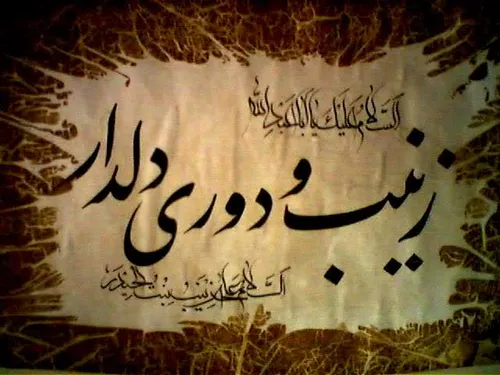 السلام علیک یا اباعبدالله
زینب و دوری دلدار
السلام علی زینب بنت الحیدر